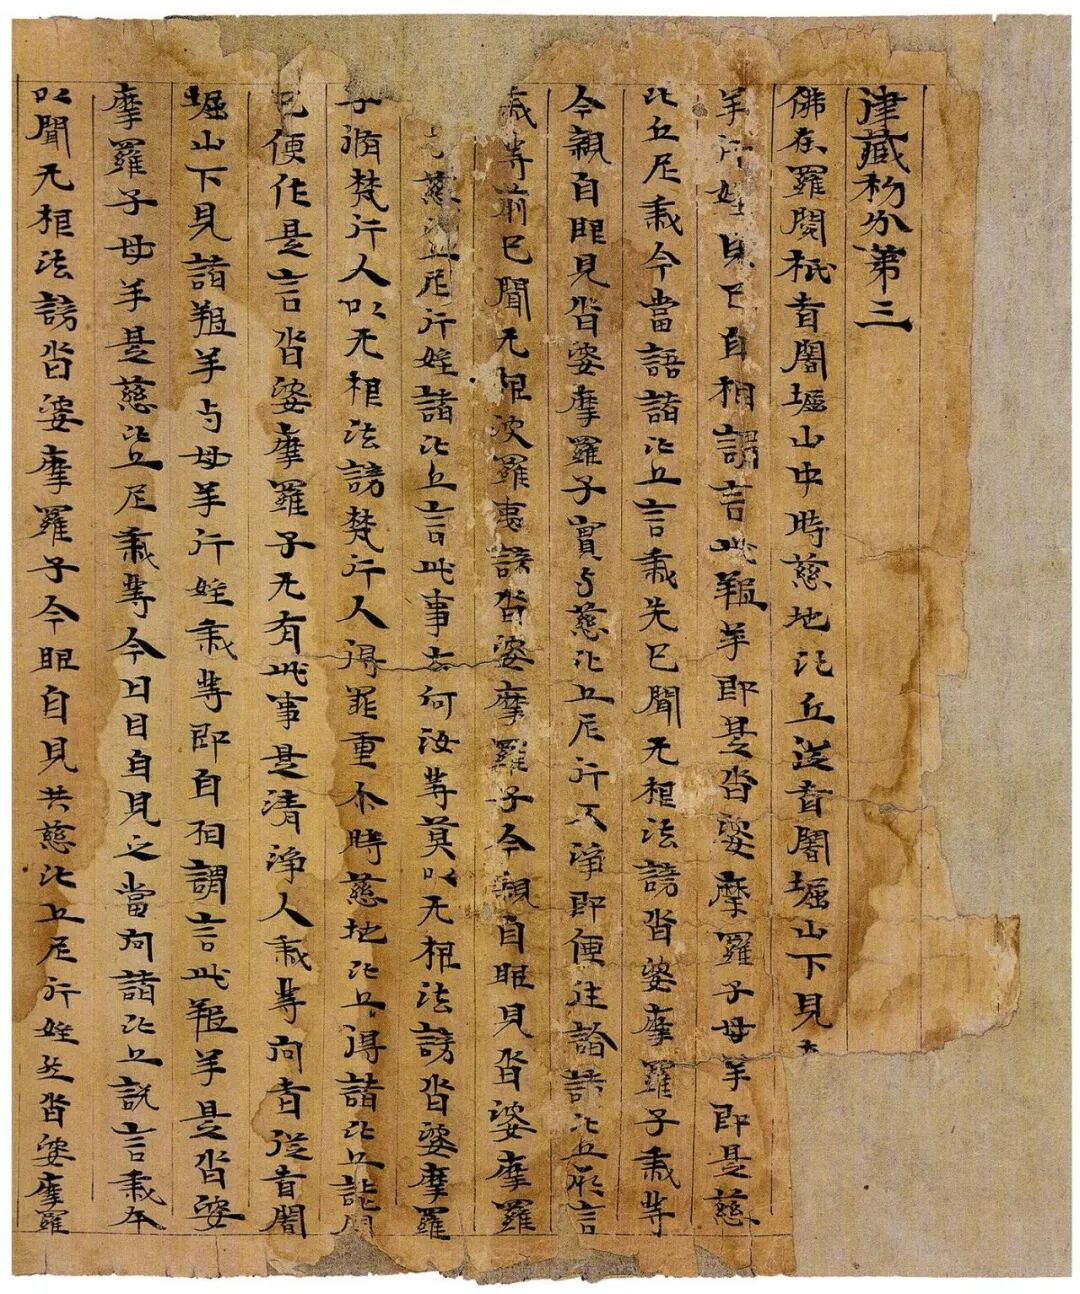 律藏初分第三
佛在羅閱祇耆闍堀山中時慈地比丘從耆闍堀山下見
羊行婬見已自相謂言此羝羊即是沓婆摩羅子母羊即是慈
比丘尼我今當語諸比丘言我先已聞无根法謗沓婆摩羅子我等
今親自眼見沓婆摩羅子實与慈比丘尼行不淨即便往詣諸比丘所言
我等前已聞无根波羅夷謗沓婆摩羅子今親自眼見沓婆摩羅
慈比丘尼行婬諸比丘言此事云何汝等莫以无根法謗沓婆摩羅
子脩梵行人以无根法謗梵行人得罪重尒時慈地比丘得諸比丘詰問
已便作是言沓婆摩羅子无有此事是清淨人我等向者從耆闍
堀山下見諸羝羊与母羊行婬我等即自相謂言此羝羊是沓婆
摩羅子母羊是慈比丘尼我等今日目自見之當向諸比丘說言我本
以聞无根法謗沓婆摩羅子今眼自見共慈比丘尼行婬然沓婆摩羅